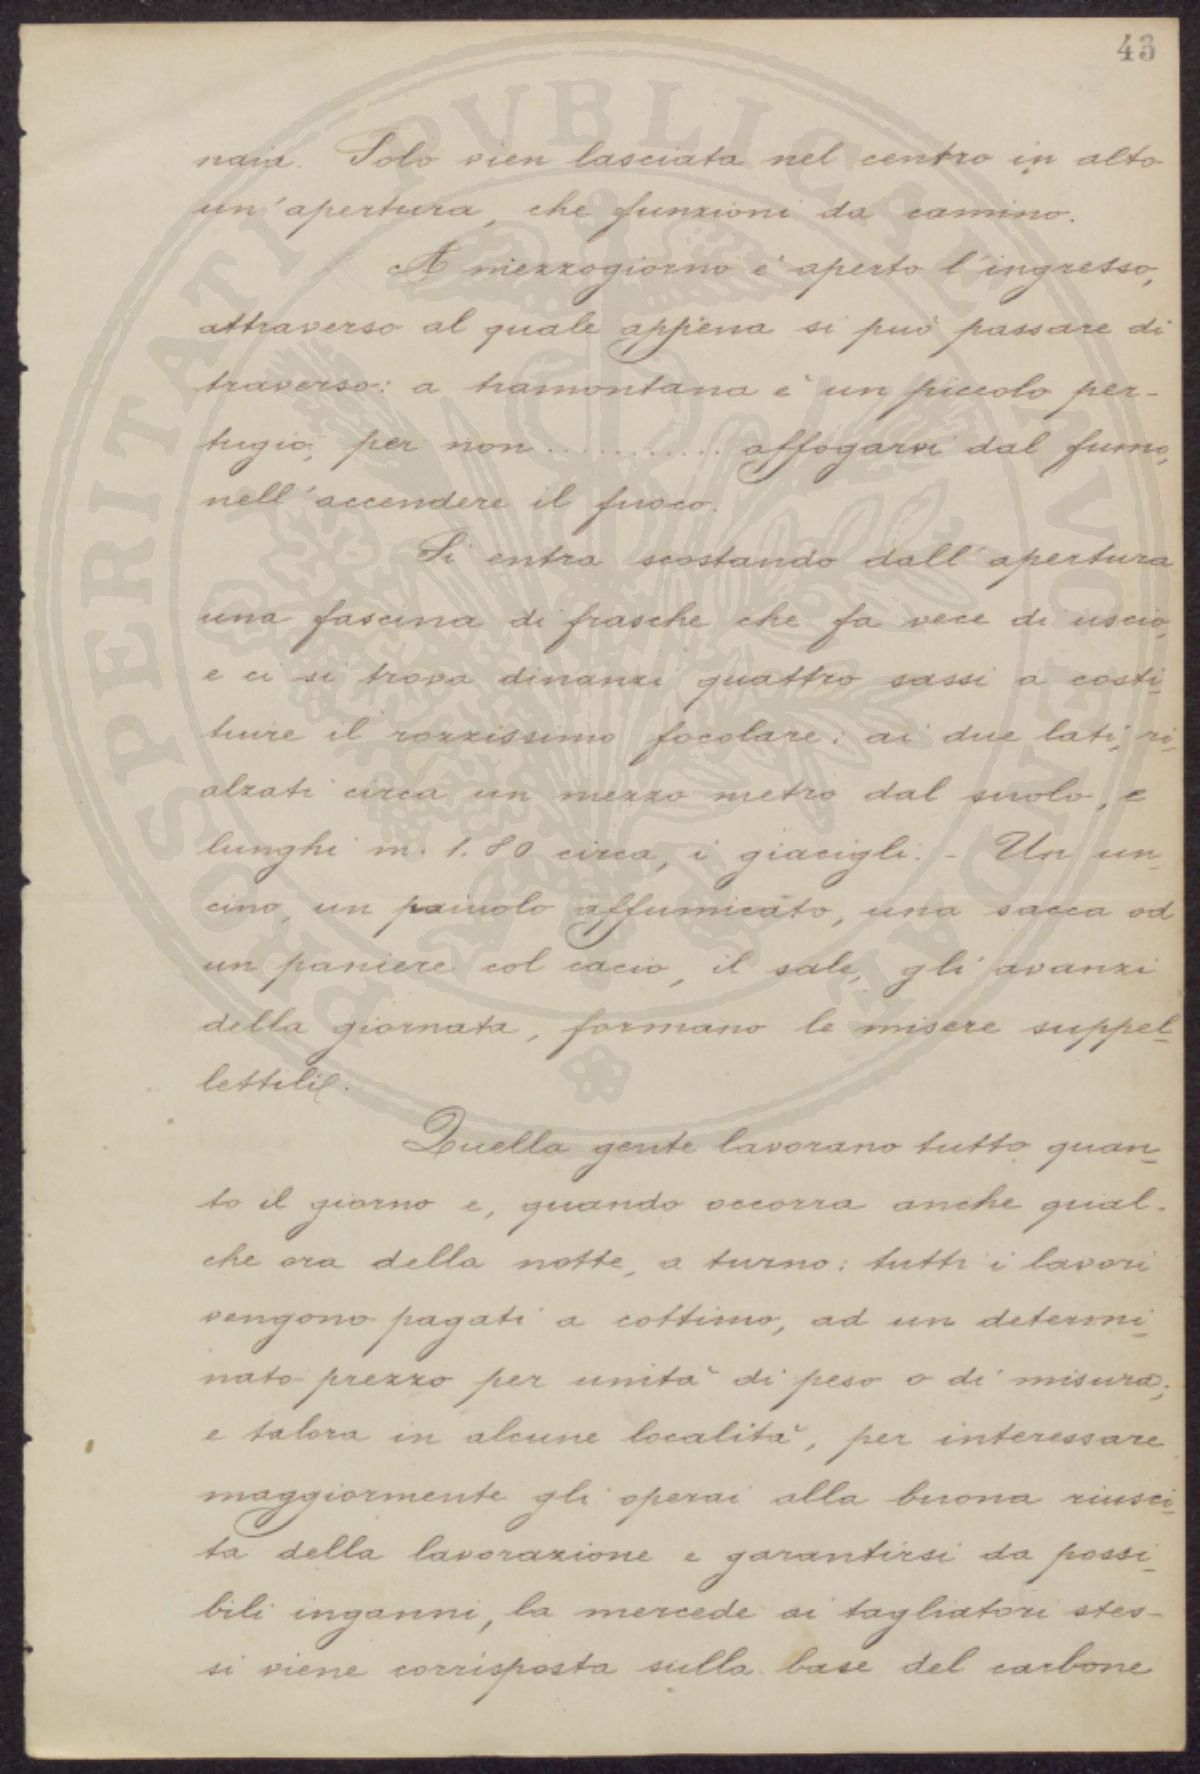 43
naia. Solo vien lasciata nel centro in alto
un'apertura, che funzioni da camino.
A mezzogiorno è aperto l'ingresso,
attraverso al quale appena si può passare di
traverso: a tramontana è un piccolo per-
tugio, per non ........... affogarvi dal fumo,
nell'accendere il fuoco.
Si entra scostando dall'apertura
una fascina di frasche che fa vece di uscio,
e ci si trova dinanzi quattro sassi a costi-
tuire il rozzissimo focolare: ai due lati, ri-
alzati circa un mezzo metro dal suolo, e
lunghi m. 1.80 circa, i giacigli. - Un un-
cino, un paiuolo affumicato, una sacca od
un paniere col cacio, il sale, gli avanzi
della giornata, formano le misere suppel-
lettili.
Quella gente lavorano tutto quan-
to il giorno e, quando occorra anche qual-
che ora della notte, a turno: tutti i lavori
vengono pagati a cottimo, ad un determi-
nato prezzo per unità di peso o di misura;
e talora in alcune località, per interessare
maggiormente gli operai alla buona riusci-
ta della lavorazione e garantirsi da possi-
bili inganni, la mercede ai tagliatori stes-
si viene corrisposta sulla base del carbone
PROSPERITATI PVBLICAE AVGENDAE